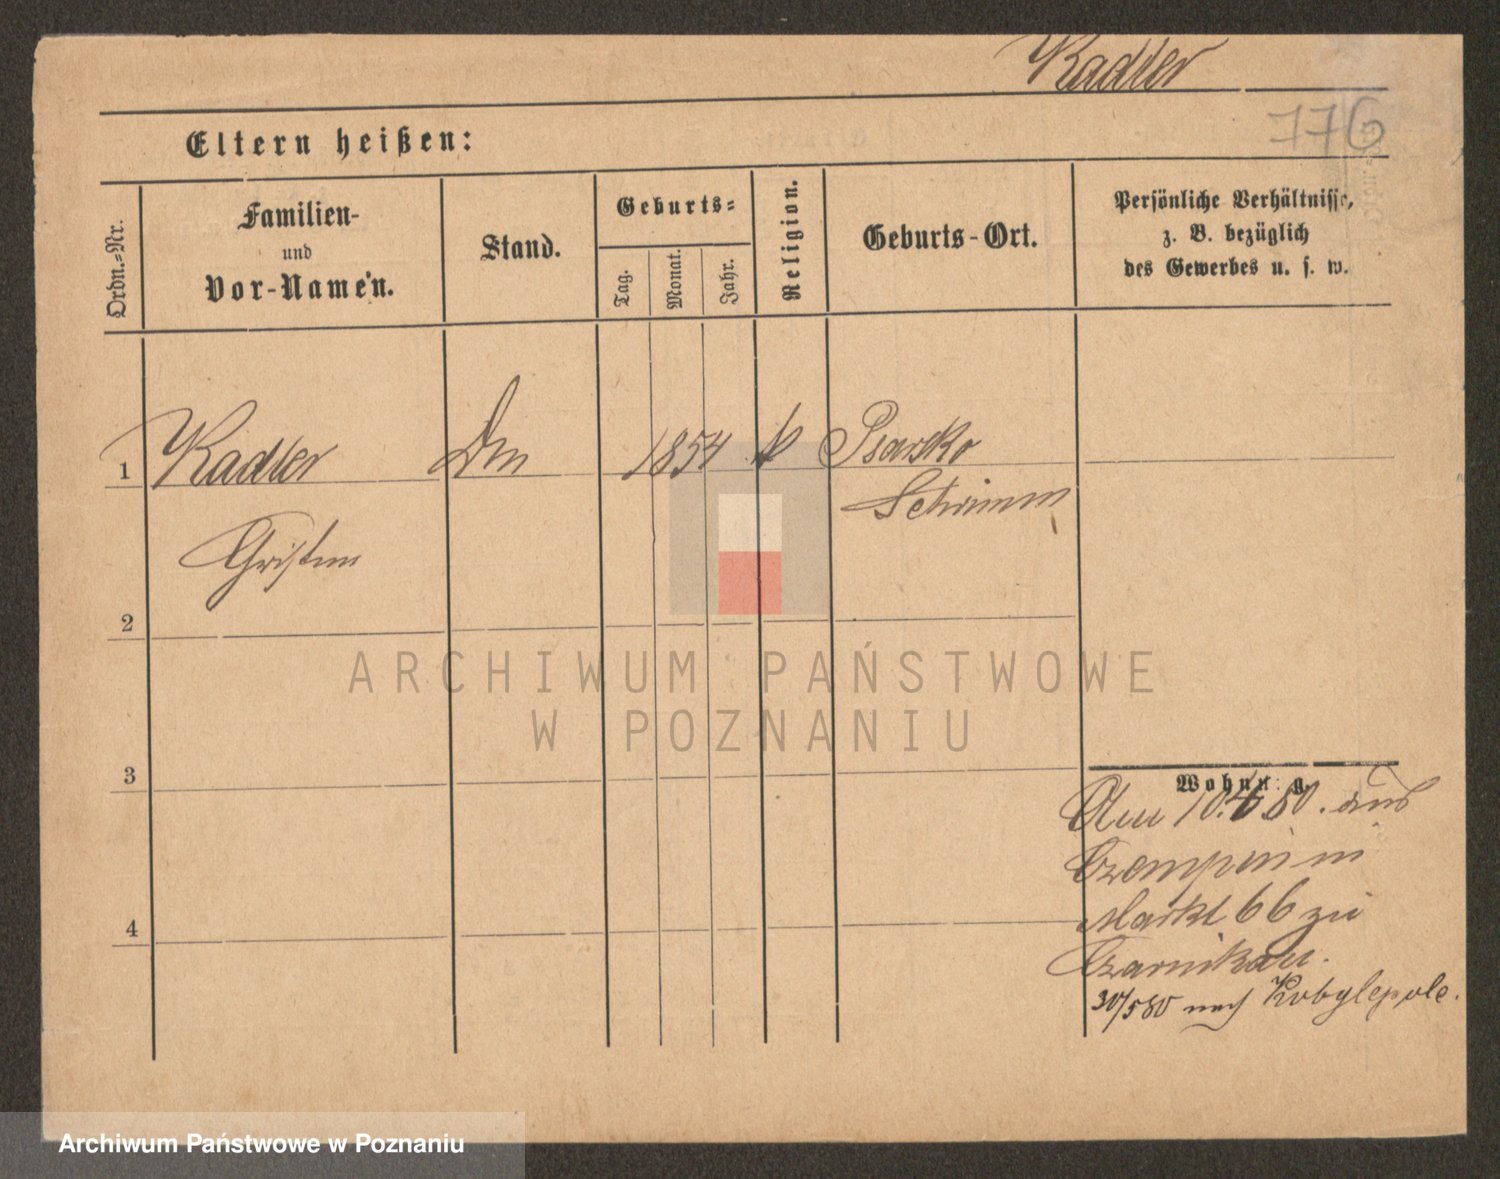 Kadler
776
Eltern heißen:
Ordn.=Nr.
Familien-
und
Vor-Namen.
Stand.
Geburts=
Tag.
Monat.
Jahr.
Religion.
Geburts-Ort.
Persönliche Verhältnisse,
z. B. bezüglich
des Gewerbes u. s. w.
1
Kadler
1854
k
Psarsko
Schrimm
2
3
4
Wohnung.
Am 10.4.80. aus
Czempin in
Markt 66 zu
Czarnikau.
30/5 80 nach Kobylepole.
ARCHIWUM PAŃSTWOWE
W POZNANIU
Archiwum Państwowe w Poznaniu